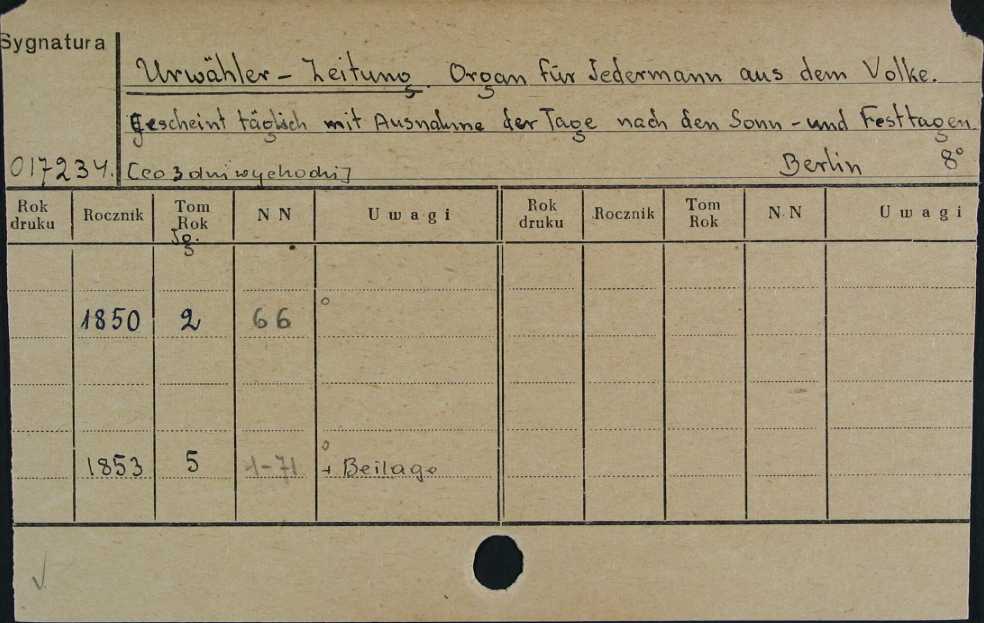 Sygnatura
Urwähler - Zeitung. Organ für Jedermann aus dem Volke.
Erscheint täglich mit Ausnahme der Tage nach den Sonn - und Festtagen.
017234. [co 3 dni wychodzi] Berlin 8°
Rok druku Rocznik Tom Rok N N Uwagi Rok druku Rocznik Tom Rok N N Uwagi
Jg.
1850 2 66 °
1853 5 1-71 ° + Beilage